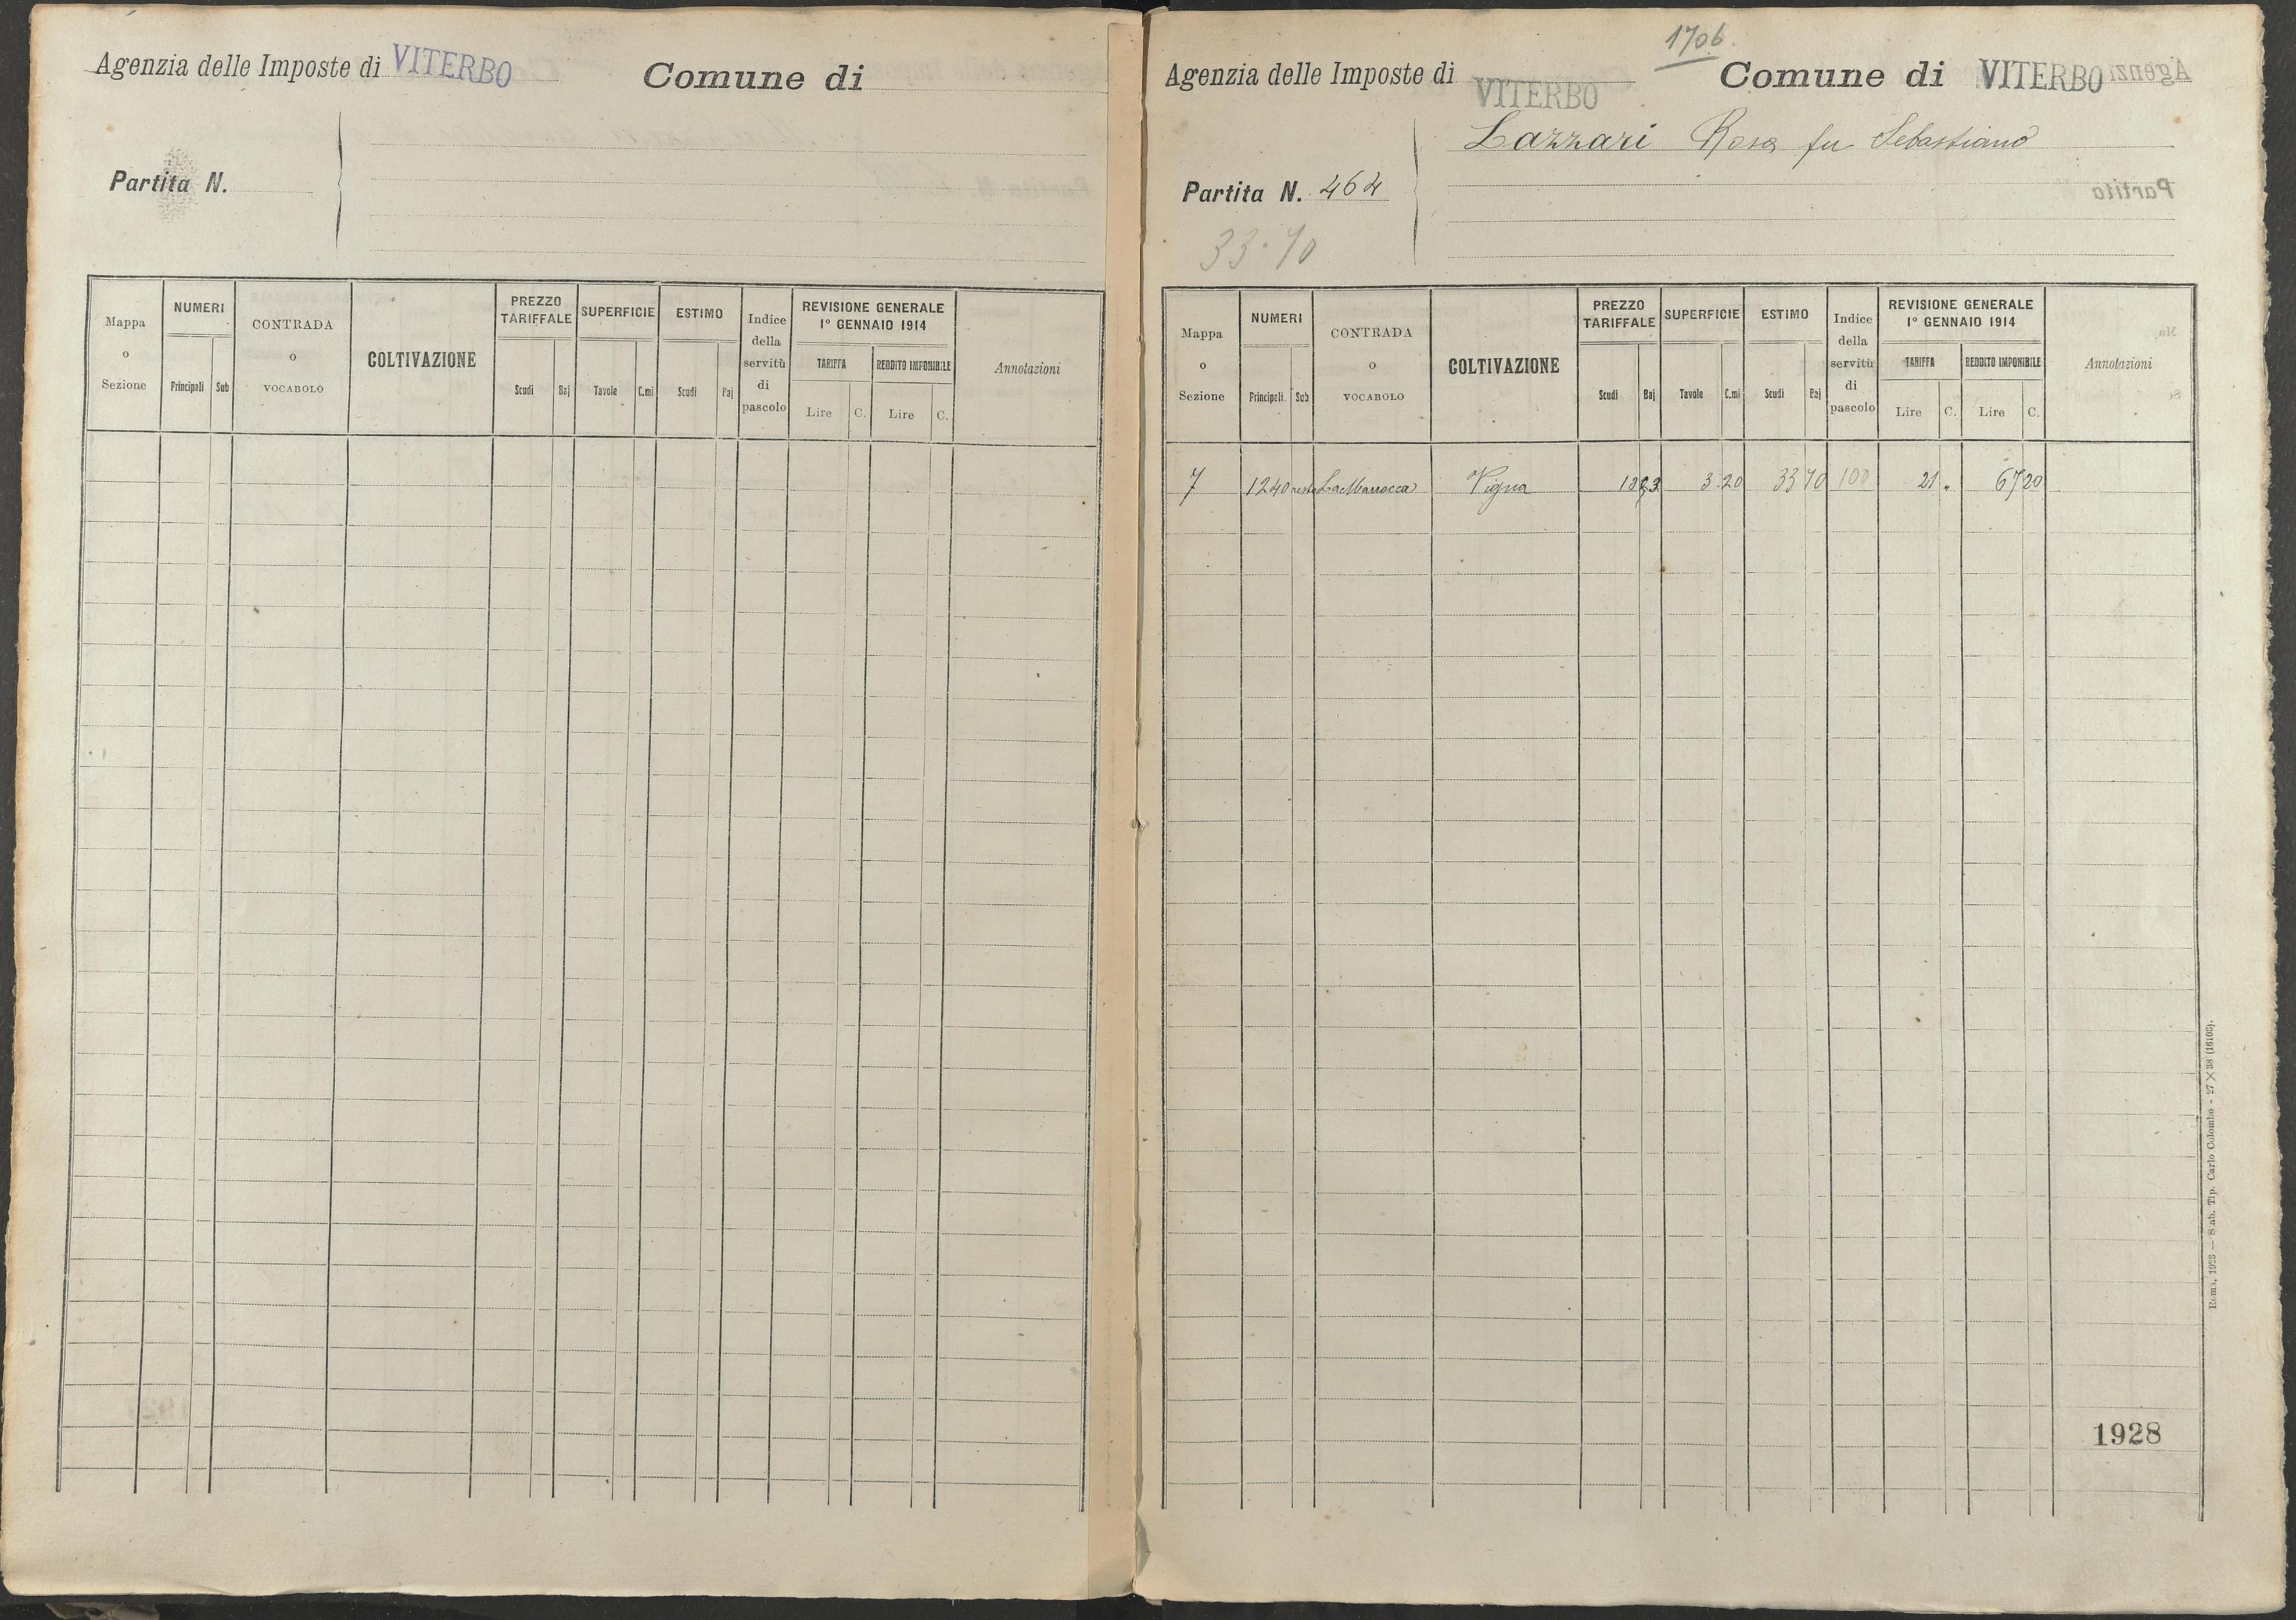 Agenzia delle Imposte di VITERBO Comune di
Partita N.
Mappa o Sezione NUMERI Principali Sub CONTRADA o VOCABOLO COLTIVAZIONE PREZZO TARIFFALE Scudi Baj SUPERFICIE Tavole C.mi ESTIMO Scudi Baj Indice della servitù di pascolo REVISIONE GENERALE 1° GENNAIO 1914 TARIFFA Lire C. REDDITO IMPONIBILE Lire C. Annotazioni
1706.
Agenzia delle Imposte di VITERBO Comune di VITERBO
Lazzari Rosa fu Sebastiano
Partita N. 464
33.70
Mappa o Sezione NUMERI Principali Sub CONTRADA o VOCABOLO COLTIVAZIONE PREZZO TARIFFALE Scudi Baj SUPERFICIE Tavole C.mi ESTIMO Scudi Baj Indice della servitù di pascolo REVISIONE GENERALE 1° GENNAIO 1914 TARIFFA Lire C. REDDITO IMPONIBILE Lire C. Annotazioni
7 1240 resto La Marrocca Vigna 3 20 33 70 100 21 " 67 20
1928
Roma, 1923 — Stab. Tip. Carlo Colombo - 27 X 38